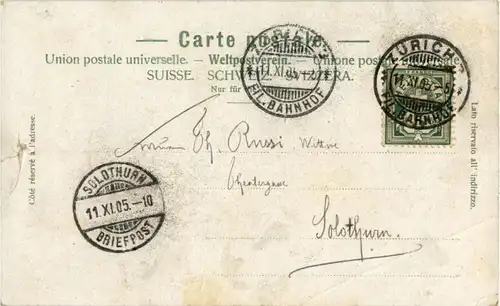 Carte postale.
Union postale universelle. – Weltpostverein. – Unione postale universale.
SUISSE. SCHWEIZ. SVIZZERA.
Nur für
ZÜRICH
11.XI.05.
FIL. BAHNHOF
ZÜRICH
11.XI.05.
FIL. BAHNHOF
Côté réservé à l'adresse.
Lato riservato all'indirizzo.
Th. Russi Witwe
Solothurn
SOLOTHURN
11.XI.05.–10
BRIEFPOST